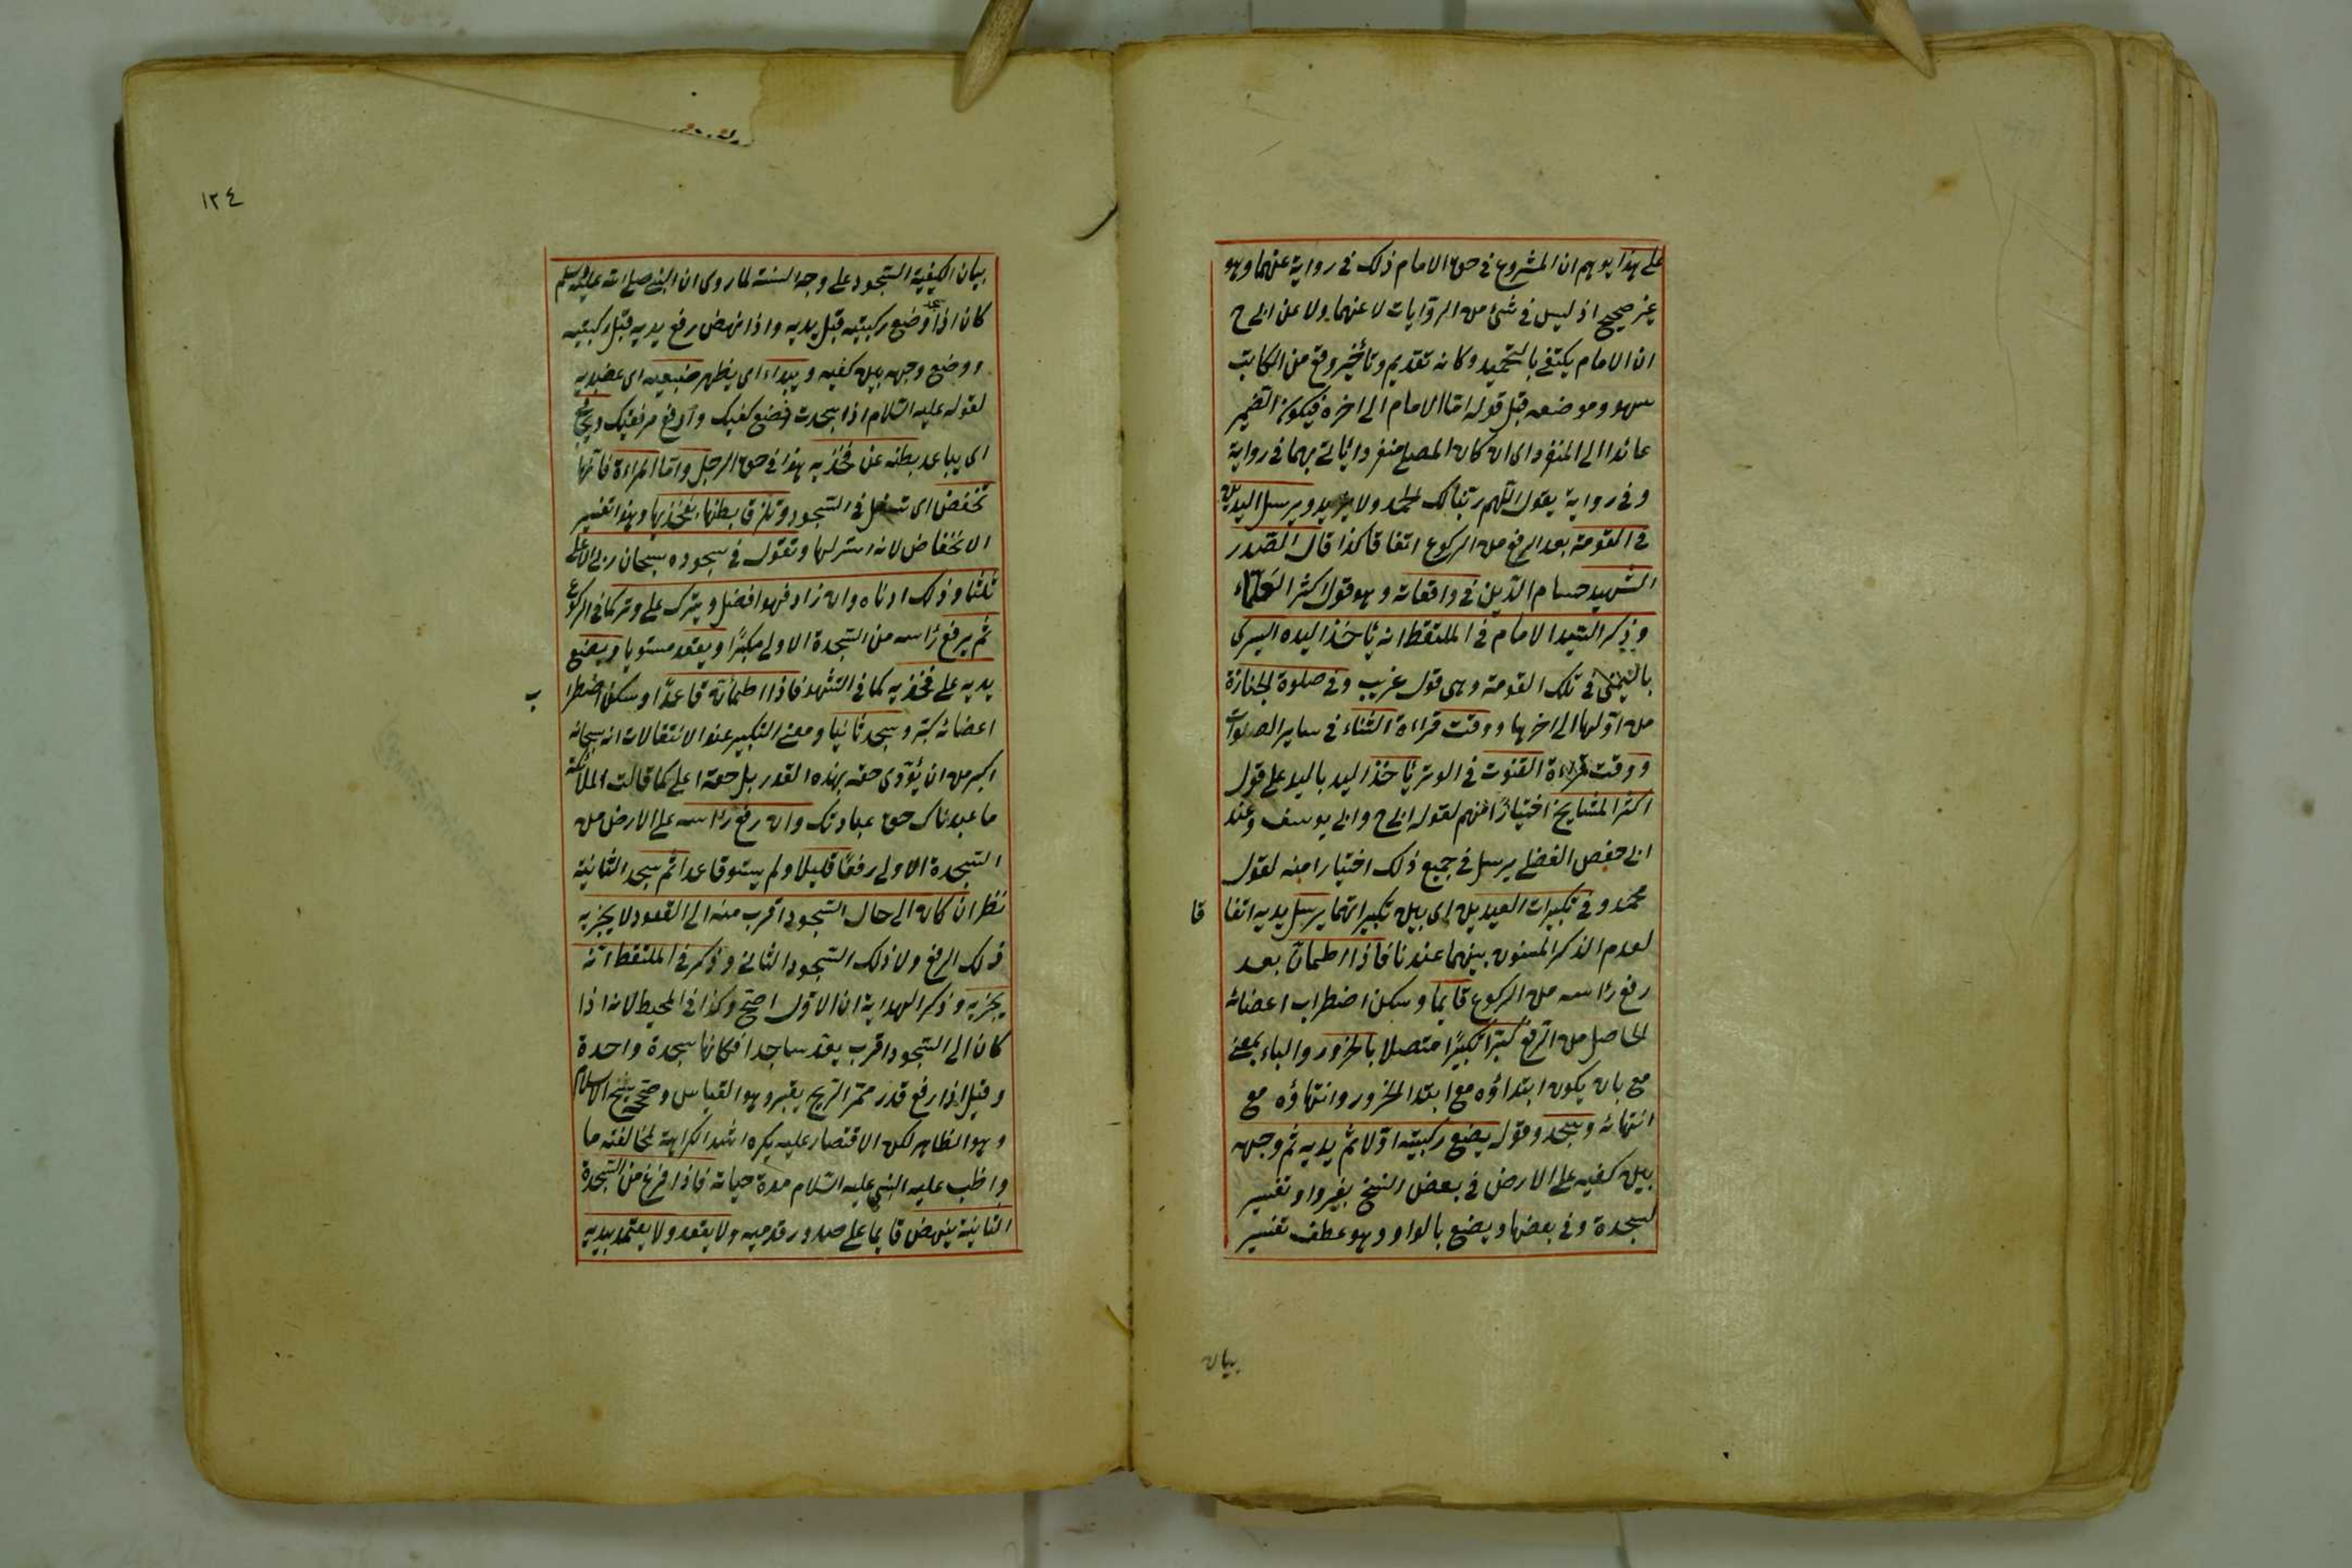 على هذا يوهم ان المشروع في حق الامام ذلك في رواية عنهما وهو
غير صحيح اذ ليس في شئ من الروايات لا عنهما ولا عن ابي ح
ان الامام يكتفي بالتحميد وكانه تقديم وتأخير وقع من الكاتب
سهو وموضعه قبل قوله امّا الامام الى اخره فيكون الضمير
عائدا الى المنفرد اى ان كان المصلى منفردا يأتي بهما في رواية
وفي رواية يقول اللّهم ربّنا لك الحمد ولا يزيد ويرسل اليدين
في القومة بعد الرفع من الركوع اتفاقا كذا قال الصّدر
الشهيد حسام الدّين في واقعاته وهو قول اكثر العلمآء
وذكر السّيد الامام في الملتقط انه يأخذ اليده اليسرى
باليمنى في تلك القومة وهى قول غريب وفي صلوة الجنازة
من اوّلها الى اخرها ووقت قراءة الثناء في ساير الصلوات
ووقت قراءة القنوت في الوتر يأخذ اليد باليد على قول
اكثر المشايخ اختيارًا منهم لقوله ابى ح وابى يوسف وعند
ابى حفص الفضلى يرسل في جميع ذلك اختيارا منه لقول
محمّد وفي تكبيرات العيدين اى بين تكبيراتهما يرسل يديه اتفا قا
لعدم الذكر المسنون بينهما عندنا فاذا اطمأنّ بعد
رفع رأسه من الركوع قايما وسكن اضطراب اعضائه
الحاصل من الرّفع كبّر تكبيرًا متصلا بالخرور والباء بمعنى
مع بان يكون ابتداؤه مع ابتدا الخرور وانتهاؤه مع
انتهائه ويسجد وقوله يضع ركبتيه اوّلا ثمّ يديه ثم وجهه
بين كفيه على الارض في بعض النسخ بغير واو تفسير
لسجدة وفي بعضها ويضع بالواو وهو عطف تفسير
بيان
١٢٤
بيان الكيفية السّجود على وجه السنة لما روى ان النبى صلى الله عليه وسلم
كان اذا سجد وضع ركبتيه قبل يديه واذا نهض رفع يديه قبل ركبتيه
ووضع وجهه بين كفيه ويبداء اى يظهر ضبعيه اى عضديه
لقوله عليه السّلام اذا سجدت فضع كفيك وارفع مرفقيك ويجافى
اى يباعد بطنه عن فخذيه هذا في حق الرجل وامّا المراءة فانّها
تخفض اى تتسفل في السّجود وتلزق بطنها بفخذيها وهذا تفسير
الانخفاض لانه استر لها وتقول في سجوده سبحان ربى الاعلى
ثلثا وذلك ادناه وان زاد فهو افضل ويترك على وتر كما في الركوع
ثم يرفع رأسه من السّجدة الاولى مكبّرًا ويقعد مستويا ويضع
يديه على فخذيه كما في التشهد فاذا اطمأنّ قاعدًا وسكن اضطرا ب
اعضائه كبّر وسجد ثانيا ومعنى التكبير عند الانتقالات انه سبحانه
اكبر من ان يؤدّى حقه بهذه القدر بل حقه اعلى كما قالت الملائكة
ما عبدناك حق عبادتك وان رفع رأسه على الارض من
السّجدة الاولى رفعًا قليلا ولم يستو قاعدا ثم سجد الثانية
نظر ان كان الى حال السّجود اقرب منه الى القعود لا يجزيه
ذلك الرفع ولا ذلك السّجود الثانى وذكر في الملتقط انّه
يجزيه وذكر الهداية ان الاوّل اصحّ وكذا في المحيط لانه اذا
كان الى السّجود اقرب يعّد ساجدا فكانها سجدة واحدة
وقيل اذا رفع قدر ممرّ الرّيح يعتبر وهو القياس وصحّحه شيخ الاسلام
وهو الظاهر لكن الاقتصار عليه يكره اشد الكراهة لمخالفته ما
واظب عليه النبى عليه السّلام مدة حياته فاذا فرغ من السّجدة
الثانية ينهض قايما على صدور قدميه ولا يقعد ولا يعتمد بيديه